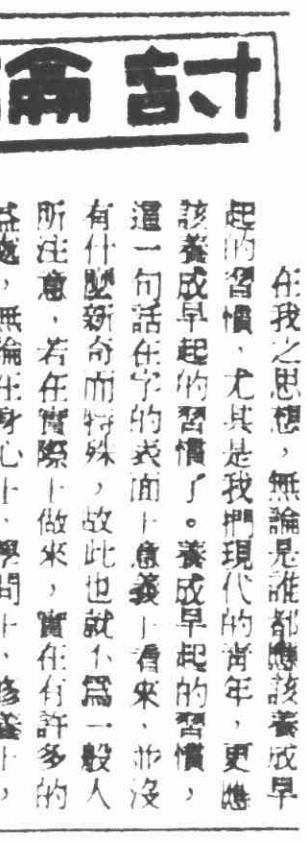 討論
在我之思想，無論是誰都應該養成早
起的習慣，尤其是我們現代的青年，更應
該養成早起的習慣了。養成早起的習慣，
這一句話在字的表面上意義上看來，並沒
有什麼新奇而特殊，故此也就不爲一般人
所注意，若在實際上做來，實在有許多的
益處，無論在身心上、學問上、修養上，